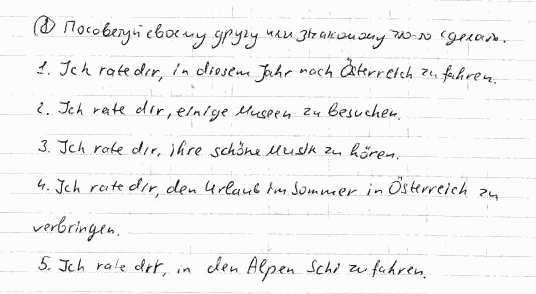 ⑧ Посоветуй своему другу или знакомому что-то сделать.
1. Ich rate dir, in diesem Jahr nach Österreich zu fahren.
2. Ich rate dir, einige Museen zu besuchen.
3. Ich rate dir, ihre schöne Musik zu hören.
4. Ich rate dir, den Urlaub im Sommer in Österreich zu
verbringen.
5. Ich rate dir, in den Alpen Schi zu fahren.